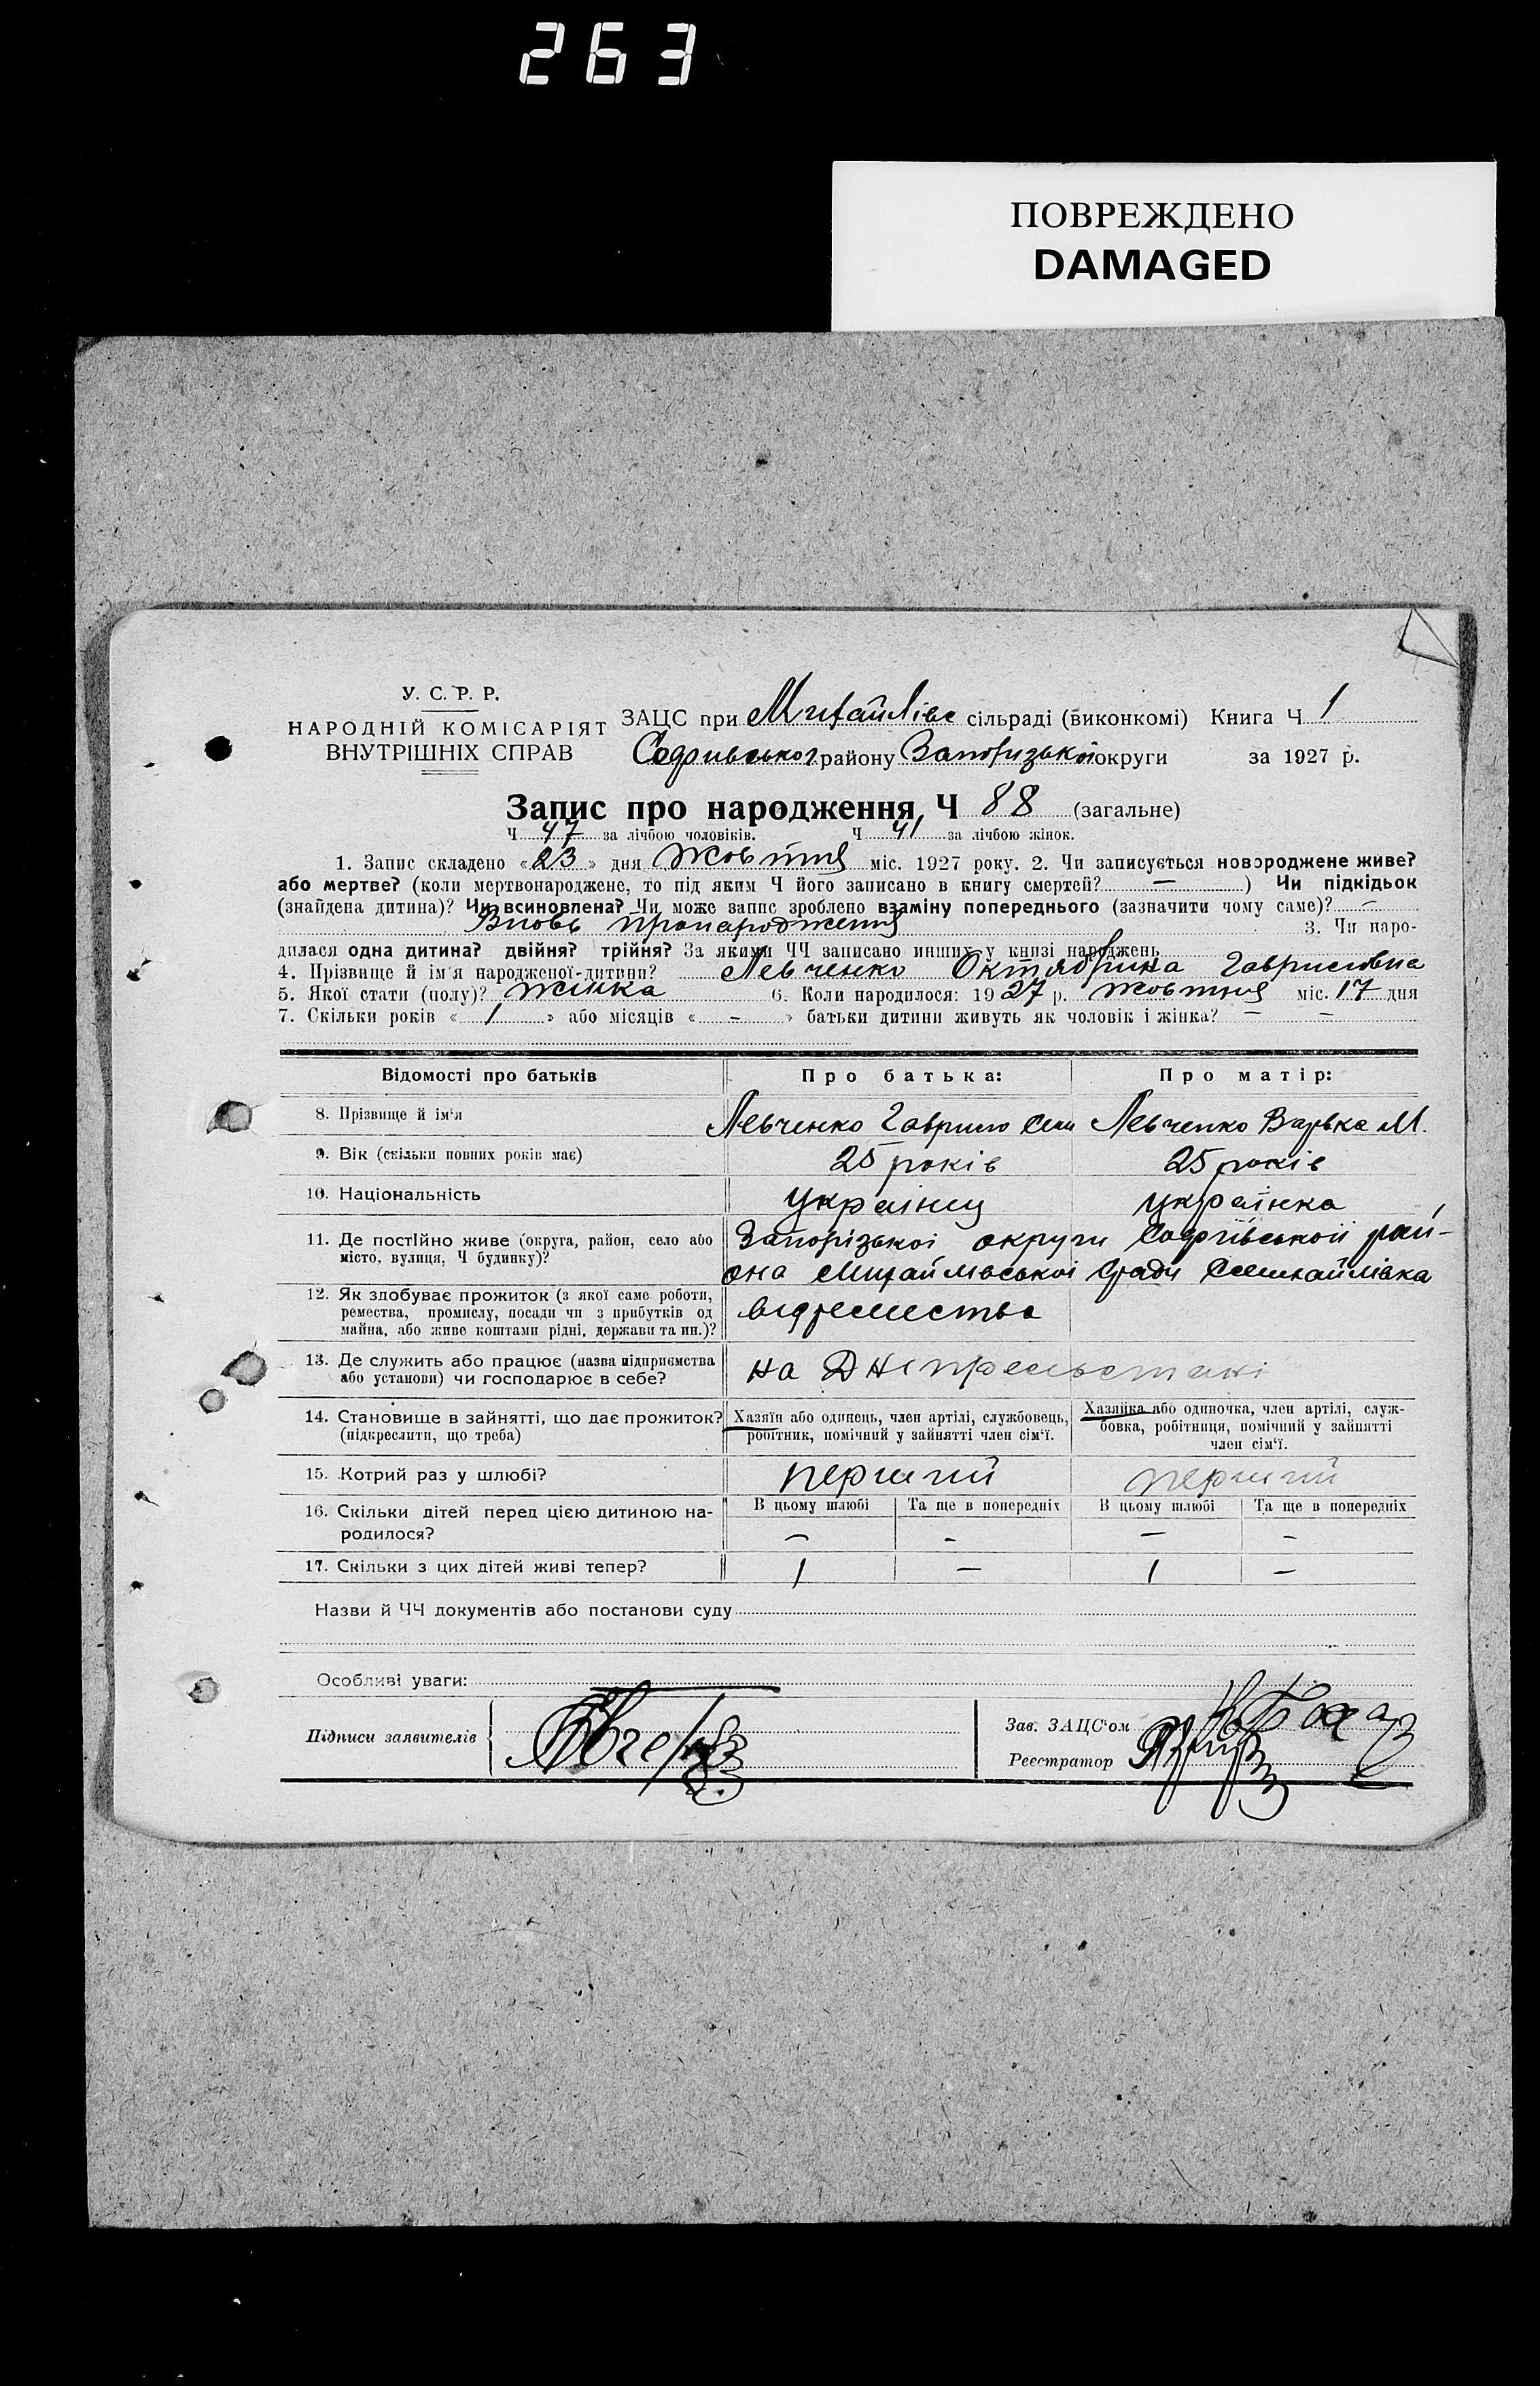 263
ПОВРЕЖДЕНО
DAMAGED
У. С. Р. Р.
НАРОДНІЙ КОМІСАРІЯТ
ВНУТРІШНІХ СПРАВ
ЗАЦС при Михайлівс сільраді (виконкомі) Книга Ч 1
району Запорізької округи за 1927 р.
Запис про народження, Ч 88 (загальне)
Ч 47 за лічбою чоловіків. Ч 41 за лічбою жінок.
1. Запис складено «23» дня Жовтня міс. 1927 року. 2. Чи записується новороджене живе?
або мертве? (коли мертвонароджене, то під яким Ч його записано в книгу смертей? — ) Чи підкідьок
(знайдена дитина)? Чи всиновлена? Чи може запис зроблено взаміну попереднього (зазначити чому саме)? —
Вновь 3. Чи наро-
дилася одна дитина? двійня? трійня? За якими ЧЧ записано инших у книзі народжень
4. Прізвище й ім'я народженої-дитини? Левченко Октябрина Гавриловна
5. Якої стати (полу)? Жінка 6. Коли народилося: 1927 р. жовтня міс. 17 дня
7. Скільки років «1» або місяців «-» батьки дитини живуть як чоловік і жінка? — —
Відомості про батьків Про батька: Про матір:
8. Прізвище й ім'я Левченко Гаврило Сем Левченко Варька М.
9. Вік (скільки повних років має) 25 років 25 років
10. Національність українец українка
11. Де постійно живе (округа, район, село або Запорізькоі округи Софіївськой рай-
місто, вулиця, Ч будинку)? она Михайлівськоі Сради С Михайлівка
12. Як здобуває прожиток (з якої саме роботи,
ремества, промислу, посади чи з прибутків од
майна, або живе коштами рідні, держави та ин.)? відремества
13. Де служить або працює (назва підприємства
або установи) чи господарює в себе? на
14. Становище в зайнятті, що дає прожиток? Хазяїн або одинець, член артілі, службовець, Хазяйка або одиночка, член артілі, служ-
(підкреслити, що треба) робітник, помічний у зайнятті член сім'ї. бовка, робітниця, помічний у зайнятті
член сім'ї.
15. Котрий раз у шлюбі? перший перший
16. Скільки дітей перед цією дитиною на- В цьому шлюбі Та ще в попередніх В цьому шлюбі Та ще в попередніх
родилося? — - — -
17. Скільки з цих дітей живі тепер? 1 — 1 —
Назви й ЧЧ документів або постанови суду
Особливі уваги:
Підписи заявителів
Зав. ЗАЦС'ом
Реєстратор